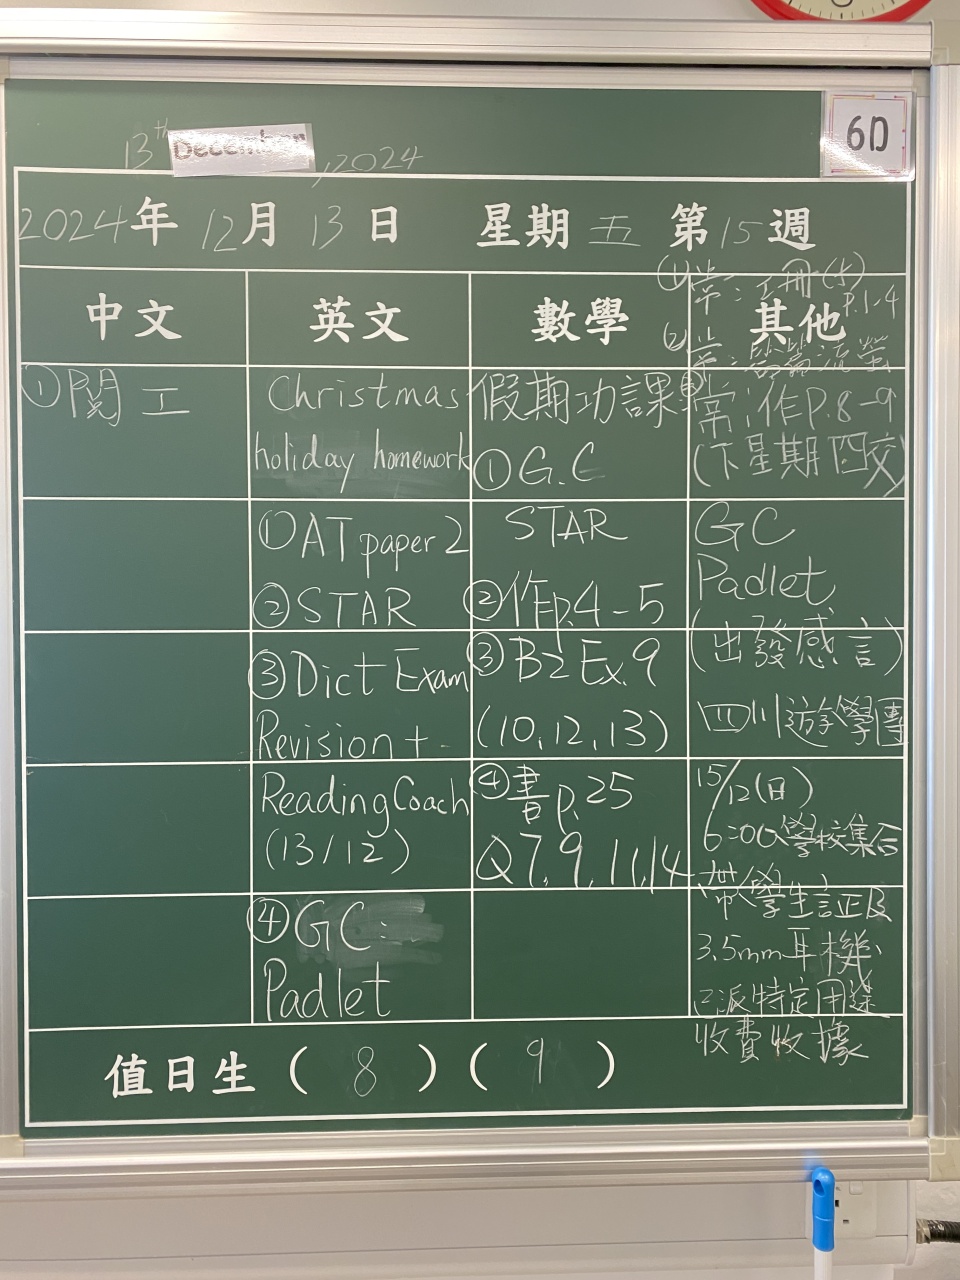 13th December, 2024
6D
2024年 12月 13日 星期五 第15週
中文
英文
數學
其他
①閱工
Christmas
holiday homework
①AT paper 2
②STAR
③Dict Exam
Revision +
Reading Coach
(13/12)
④GC:
Padlet
假期功課
①G.C
STAR
②作p.4-5
③B2 Ex.9
(10,12,13)
④書p.25
Q7,9,11,14
①常:工冊(
P.1-4
②常:
流螢
常:作p.8-9
(下星期四交)
GC
Padlet
(出發感言)
四川遊學團
15/12(日)
6:00學校集合
帶學生証及
3.5mm耳機
已派特定用途
收費收據
值日生(8)(9)